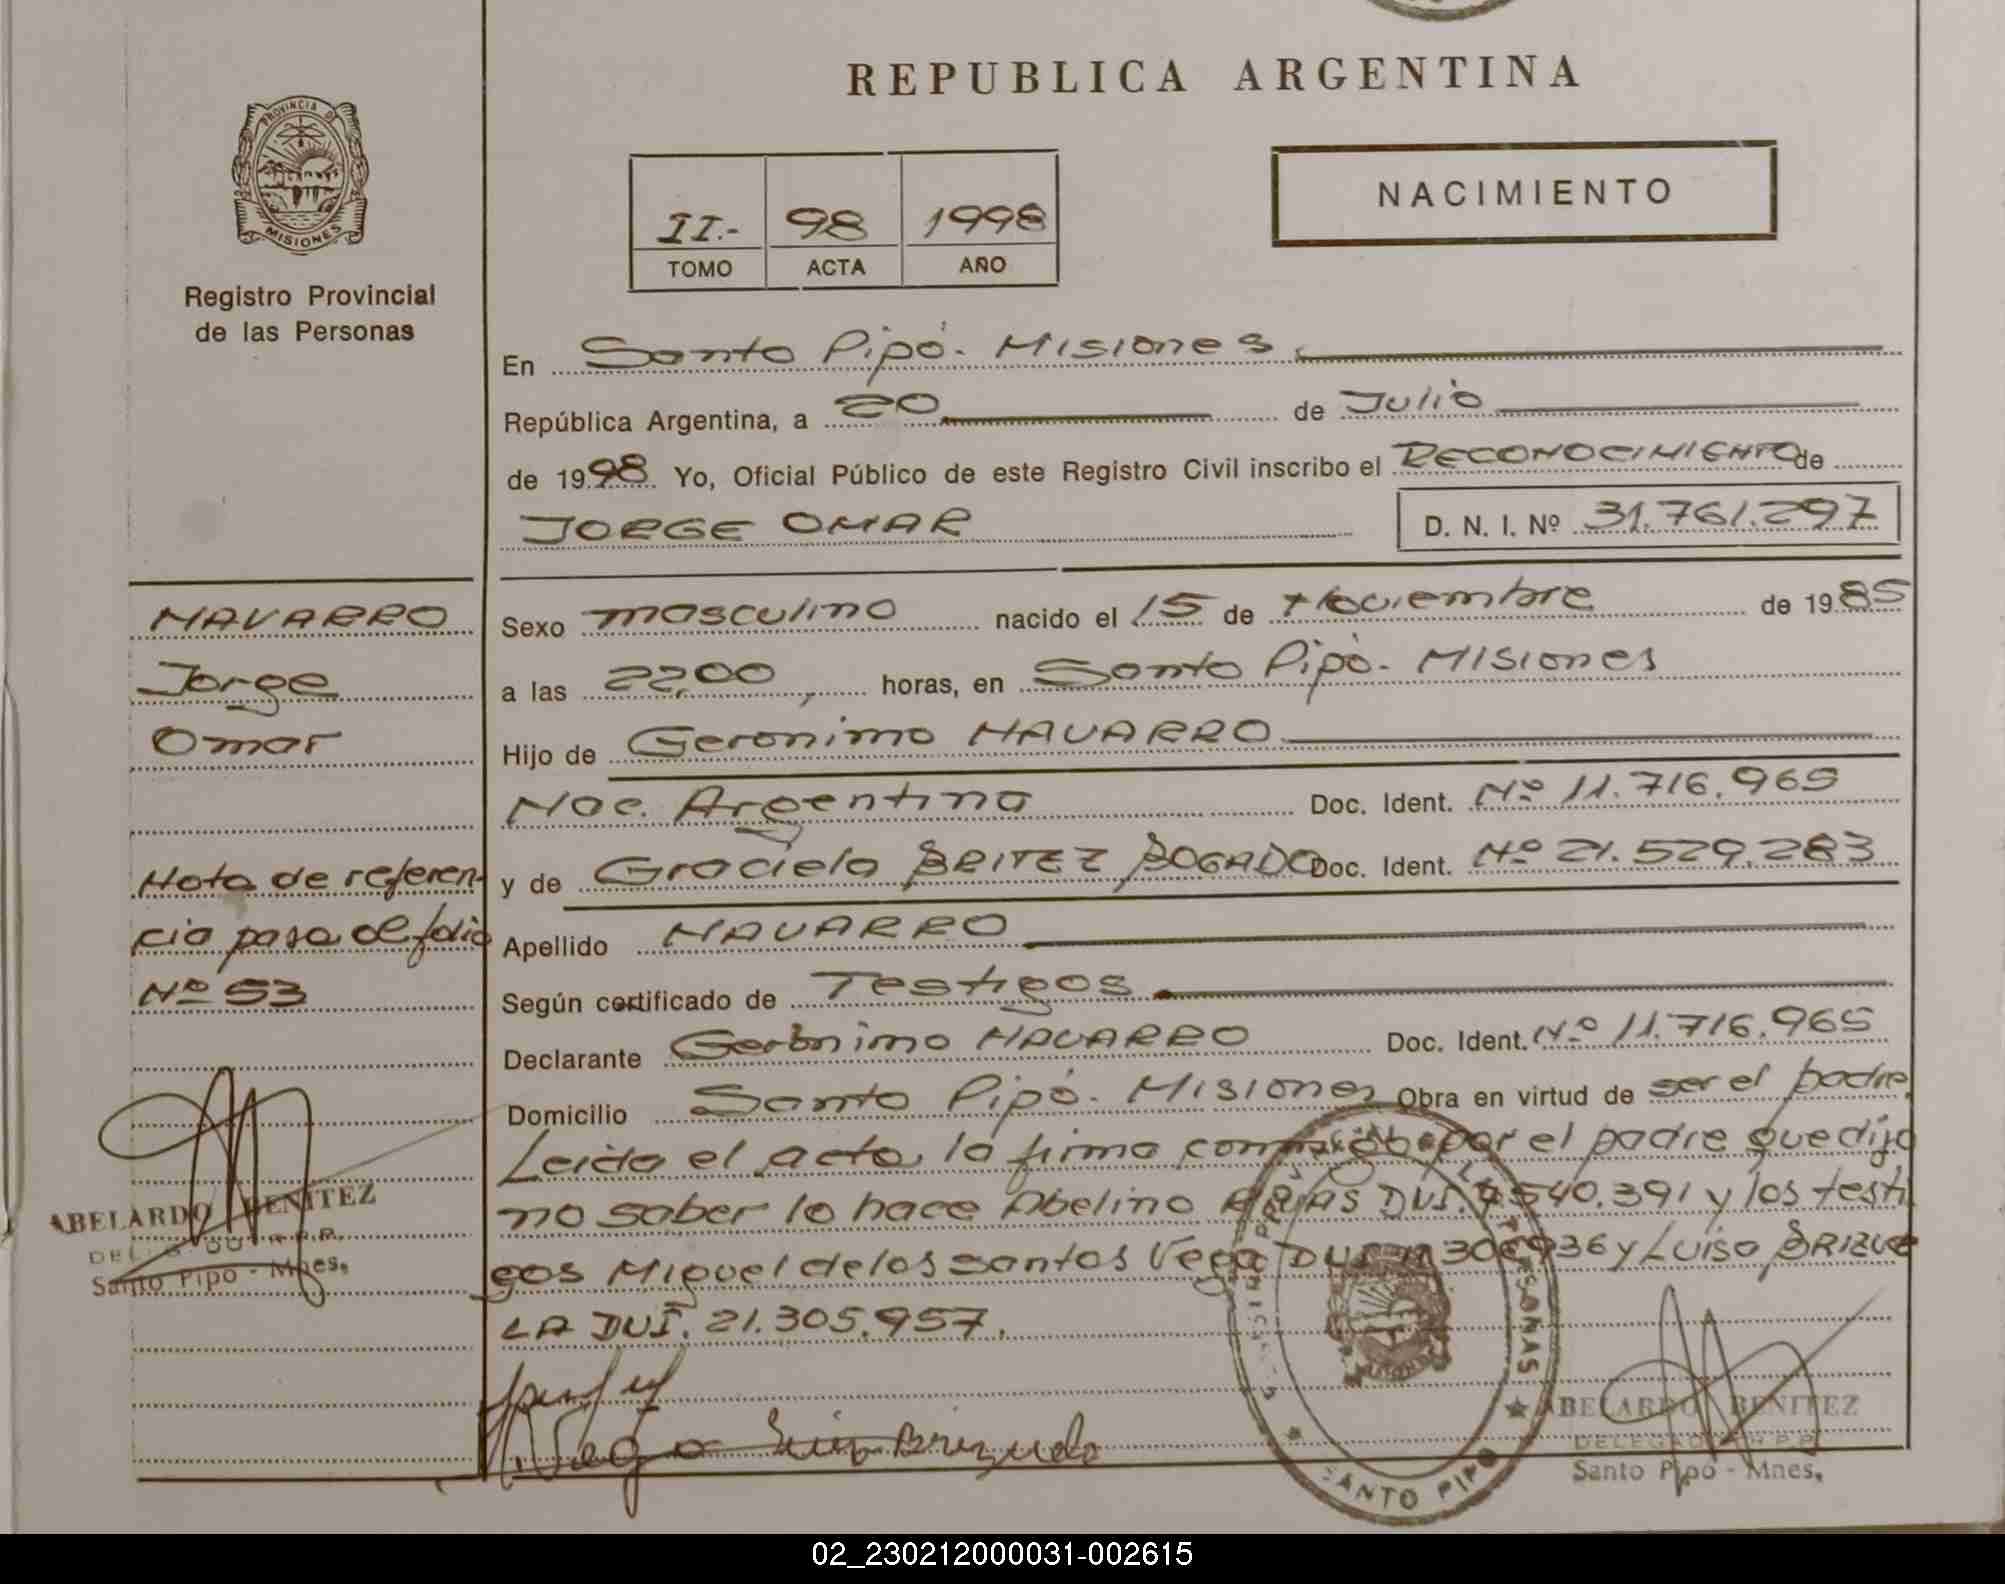 REPUBLICA ARGENTINA
PROVINCIA DE
MISIONES
Registro Provincial
de las Personas
NACIMIENTO
II.- 98 1998
TOMO ACTA AÑO
En Santo Pipó. Misiones
República Argentina, a 20 de Julio
de 1998 Yo, Oficial Público de este Registro Civil inscribo el RECONOCIMIENTO de
JORGE OMAR D. N. I. Nº 31.761.297
NAVARRO
Jorge
Omar
Nota de referen-
cia pasa al folio
Nº 53
ABELARDO BENITEZ
Santo Pipó - Mnes.
Sexo masculino nacido el 15 de Noviembre de 1985
a las 22,00, horas, en Santo Pipó. Misiones
Hijo de Geronimo NAVARRO
Nac. Argentina Doc. Ident. Nº 11.716.965
y de Graciela BRITEZ BOGADO Doc. Ident. Nº 21.529.283
Apellido NAVARRO
Según certificado de Testigos
Declarante Gerónimo NAVARRO Doc. Ident. Nº 11.716.965
Domicilio Santo Pipó. Misiones Obra en virtud de ser el padre,
Leida el acta, la firma por el padre que dijo
no saber lo hace Abelino DUI. 7.540.391 y los testi
gos Miguel de los santos Vega DUI y Luisa BRIZUE
LA DUI. 21.305.957.
Vega Luisa Brizuela
PERSONAS
SANTO PIPO
ABELARDO BENITEZ
DELEGADO R.P.P.
Santo Pipó - Mnes.
02_230212000031-002615